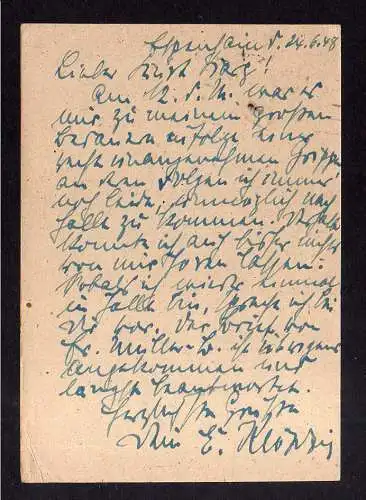 Espenhain d. 24.6.48
Lieber
Am 12. d. M. war es
mir zu meinem großen
Bedauern zufolge einer
recht unangenehmen Grippe
an deren Folgen ich immer
noch leide, unmöglich nach
Halle zu kommen. Deshalb
konnte ich auch bisher nichts
von mir hören lassen.
Sobald ich wieder einmal
in Halle bin, spreche ich bei
Dir vor. Der Brief von
Fr. Müller-B. ist übrigens
angekommen und
längst beantwortet.
Herzlichste Grüße
Dein E.